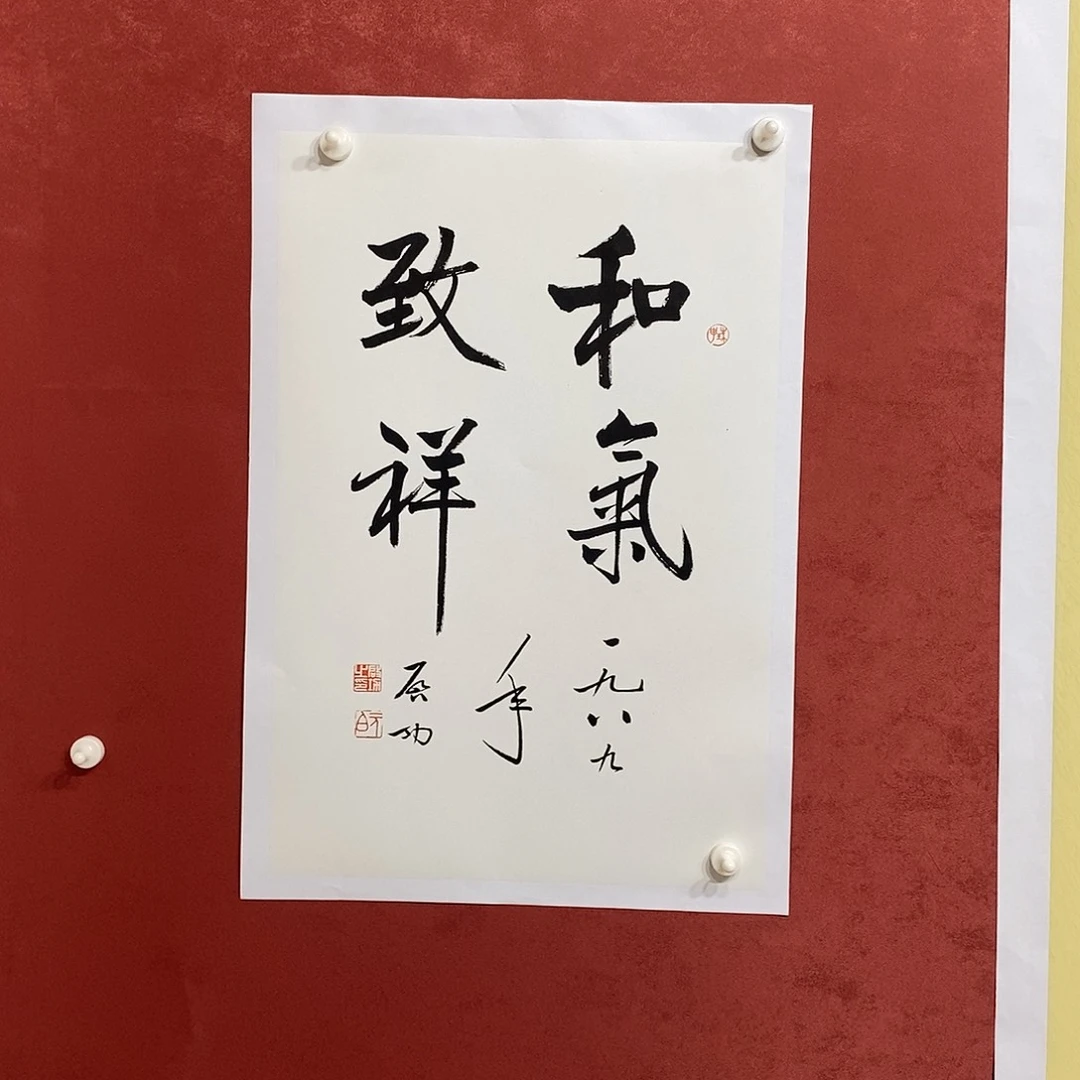 和氣
致祥
一九八九
年
启功